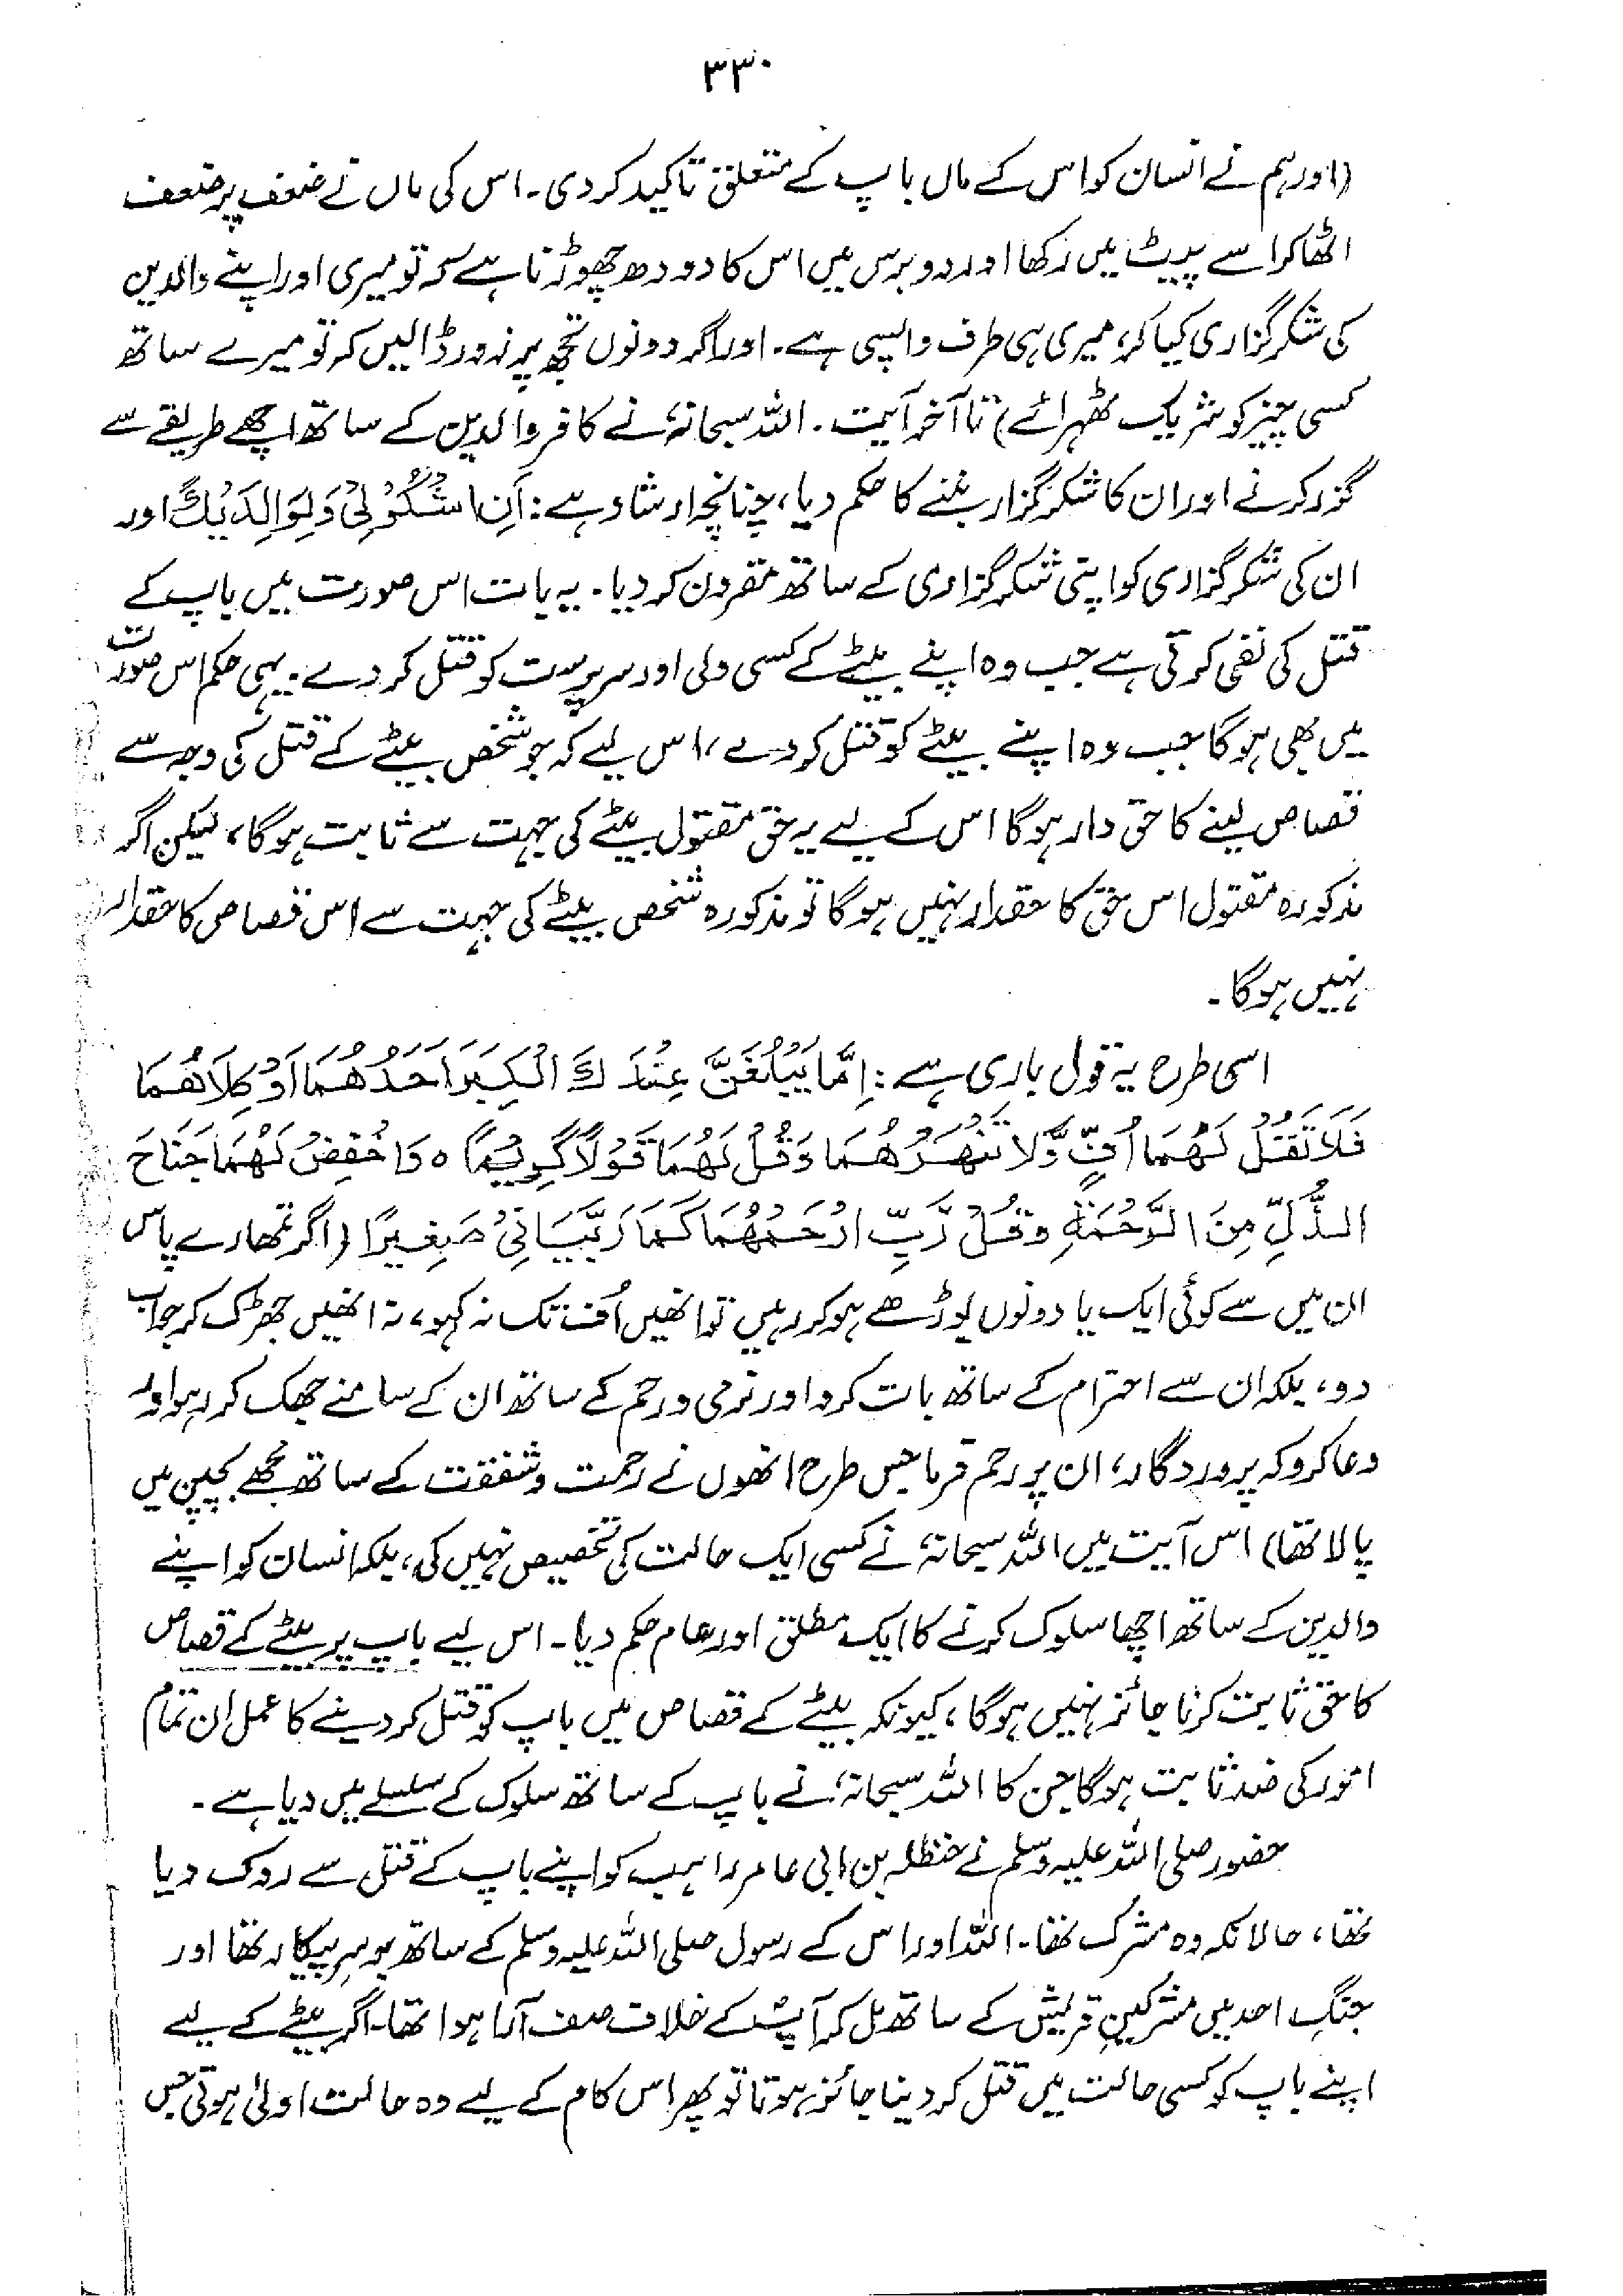 ۳۳۰
(اور ہم نے انسان کو اس کے ماں باپ کے متعلق تاکید کر دی۔ اس کی ماں نے ضعف پر ضعف
اٹھا کر اسے پیٹ میں رکھا اور دو برس میں اس کا دودھ چھوڑنا ہے کہ تو میری اور اپنے والدین
کی شکر گزاری کیا کر، میری ہی طرف واپسی ہے۔ اور اگر دونوں تجھ پر زور ڈالیں کہ تو میرے ساتھ
کسی چیز کو شریک ٹھہرائے) تا آخر آیت۔ اللہ سبحانہٗ نے کافر والدین کے ساتھ اچھے طریقے سے
گزر کرنے اور ان کا شکر گزار بننے کا حکم دیا، چنانچہ ارشاد ہے: اَنِ اشْكُرْ لِیْ وَلِوَالِدَيْكَ اور
ان کی شکر گزاری کو اپنی شکر گزاری کے ساتھ مقرون کر دیا۔ یہ بات اس صورت میں باپ کے
قتل کی نفی کرتی ہے جب وہ اپنے بیٹے کے کسی ولی اور سرپرست کو قتل کر دے۔ یہی حکم اس صورت
میں بھی ہوگا جب وہ اپنے بیٹے کو قتل کر دے، اس لیے کہ جو شخص بیٹے کے قتل کی وجہ سے
قصاص لینے کا حق دار ہوگا اس کے لیے یہ حق مقتول بیٹے کی جہت سے ثابت ہوگا، لیکن اگر
مذکورہ مقتول اس حق کا حقدار نہیں ہوگا تو مذکورہ شخص بیٹے کی جہت سے اس قصاص کا حقدار
نہیں ہوگا۔
اسی طرح یہ قول باری ہے: اِمَّا يَبْلُغَنَّ عِنْدَكَ الْكِبَرَ اَحَدُهُمَا اَوْ كِلَاهُمَا
فَلَا تَقُلْ لَهُمَا اُفٍّ وَّلَا تَنْهَرْهُمَا وَقُلْ لَهُمَا قَوْلًا كَرِيْمًا ہ وَاخْفِضْ لَهُمَا جَنَاحَ
الذُّلِّ مِنَ الرَّحْمَةِ وَقُلْ رَّبِّ ارْحَمْهُمَا كَمَا رَبَّيَانِیْ صَغِيْرًا (اگر تمھارے پاس
ان میں سے کوئی ایک یا دونوں بوڑھے ہو کر رہیں تو انھیں اُف تک نہ کہو، نہ انھیں جھڑک کر جواب
دو، بلکہ ان سے احترام کے ساتھ بات کرو اور نرمی و رحم کے ساتھ ان کے سامنے جھک کر رہو اور
دعا کرو کہ پروردگار، ان پر رحم فرما جس طرح انھوں نے رحمت و شفقت کے ساتھ مجھے بچپن میں
پالا تھا) اس آیت میں اللہ سبحانہٗ نے کسی ایک حالت کی تخصیص نہیں کی، بلکہ انسان کو اپنے
والدین کے ساتھ اچھا سلوک کرنے کا ایک مطلق اور عام حکم دیا۔ اس لیے باپ پر بیٹے کے قصاص
کا حق ثابت کرنا جائز نہیں ہوگا، کیونکہ بیٹے کے قصاص میں باپ کو قتل کر دینے کا عمل ان تمام
امور کی ضد ثابت ہوگا جن کا اللہ سبحانہٗ نے باپ کے ساتھ سلوک کے سلسلے میں دیا ہے۔
حضور صلی اللہ علیہ وسلم نے حنظلہ بن ابی عامر راہب کو اپنے باپ کے قتل سے روک دیا
تھا، حالانکہ وہ مشرک تھا۔ اللہ اور اس کے رسول صلی اللہ علیہ وسلم کے ساتھ برسرِ پیکار تھا اور
جنگِ احد میں مشرکینِ قریش کے ساتھ مل کر آپؐ کے خلاف صف آرا ہوا تھا۔ اگر بیٹے کے لیے
اپنے باپ کو کسی حالت میں قتل کر دینا جائز ہوتا تو پھر اس کام کے لیے وہ حالت اولیٰ ہوتی جس